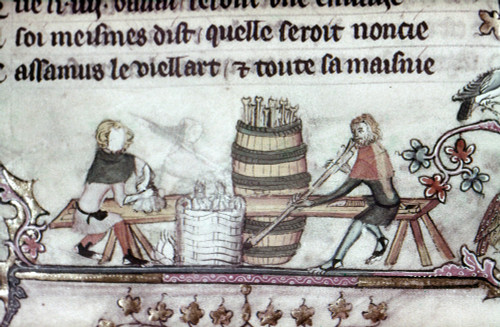 soi meismes dist quelle seroit noncie
assamus le viellart ⁊ toute sa maisnie